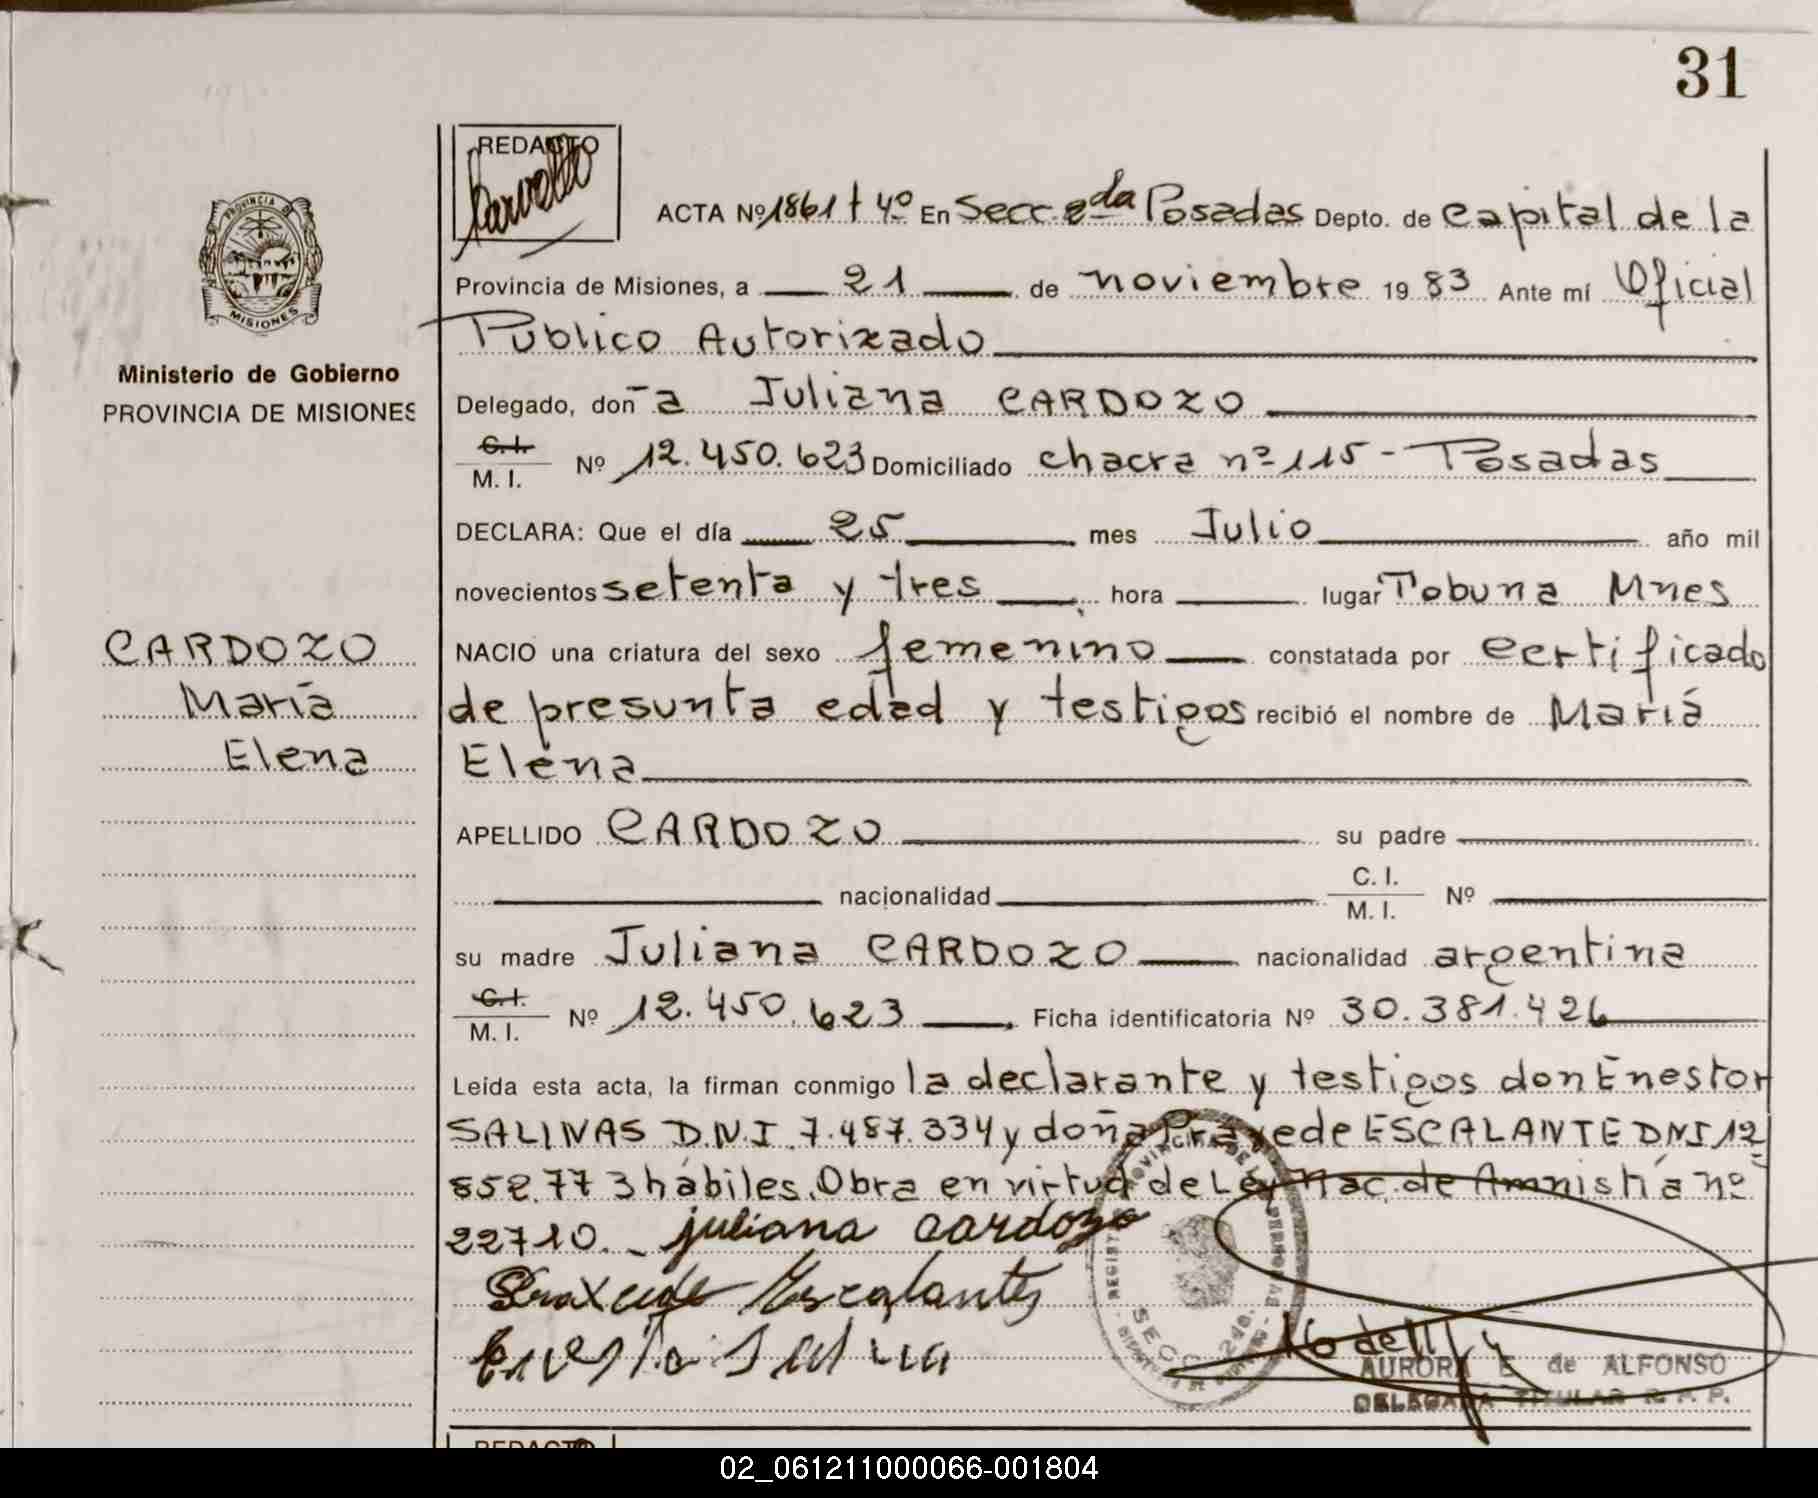 31
REDACTO
ACTA Nº 1861 t 4º En Secc. 2da Posadas Depto. de Capital de la
PROVINCIA DE
MISIONES
Provincia de Misiones, a 21 de noviembre 19 83 Ante mí Oficial
Público Autorizado
Ministerio de Gobierno
PROVINCIA DE MISIONES
Delegado, don~a Juliana CARDOZO
C.I.
M. I. Nº 12.450.623 Domiciliado chacra nº 115 - Posadas
DECLARA: Que el día 25 mes Julio año mil
novecientos setenta y tres hora lugar Tobuna Mnes
CARDOZO
María
Elena
NACIO una criatura del sexo femenino constatada por certificado
de presunta edad y testigos recibió el nombre de María
Elena
APELLIDO CARDOZO su padre
nacionalidad C. I.
M. I. Nº
su madre Juliana CARDOZO nacionalidad argentina
C.I.
M. I. Nº 12.450.623 Ficha identificatoria Nº 30.381.426
Leída esta acta, la firman conmigo la declarante y testigos don Enestor
SALINAS D.N.I. 7.487.334 y doña Praxede ESCALANTE DNI 12
852.773 hábiles. Obra en virtud de Ley Nac. de Amnistía nº
22710. - juliana cardozo
Praxede Escalante
AURORA E de ALFONSO
DELEGADA TITULAR R. P. P.
REDACTO
02_061211000066-001804